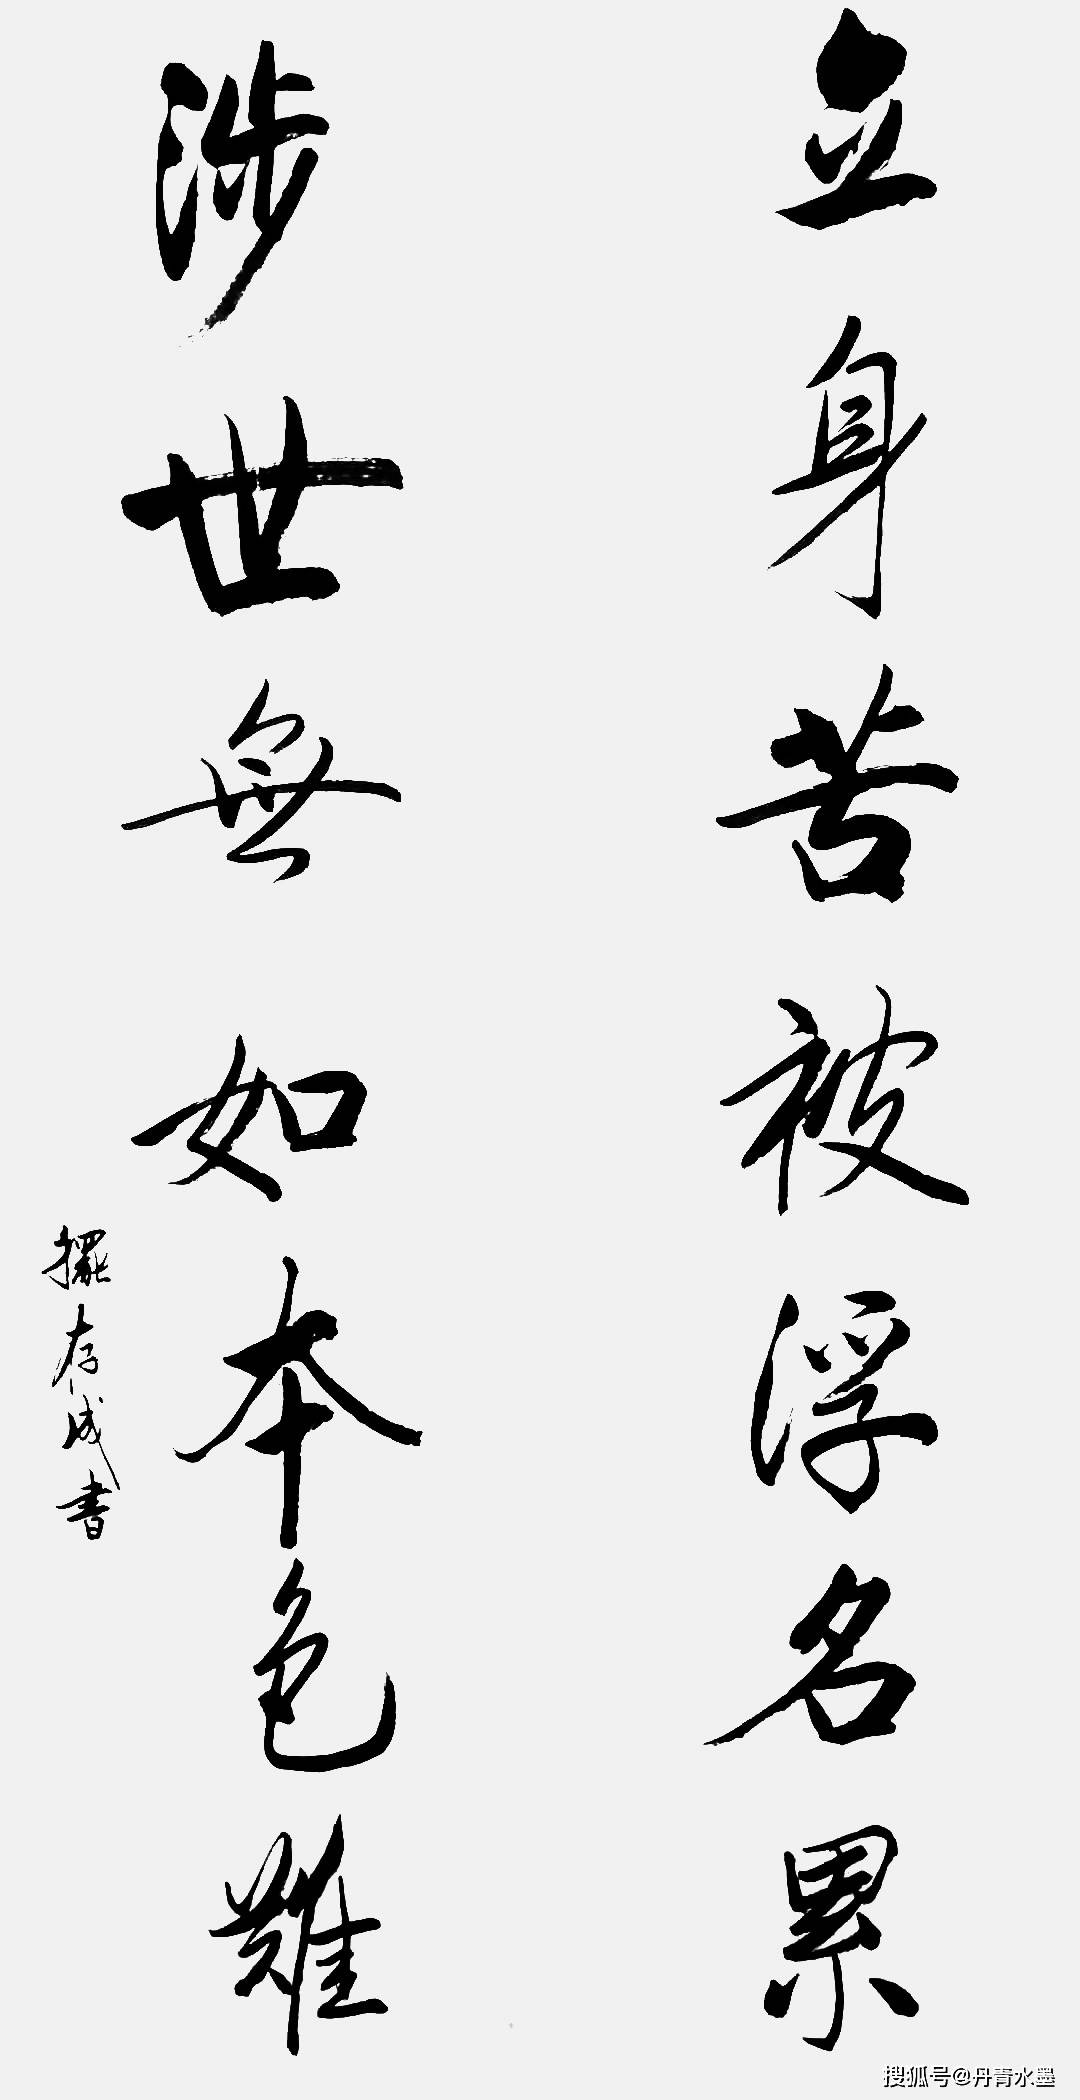 立身苦被浮名累
涉世無如本色難
擺存成書
搜狐号@丹青水墨